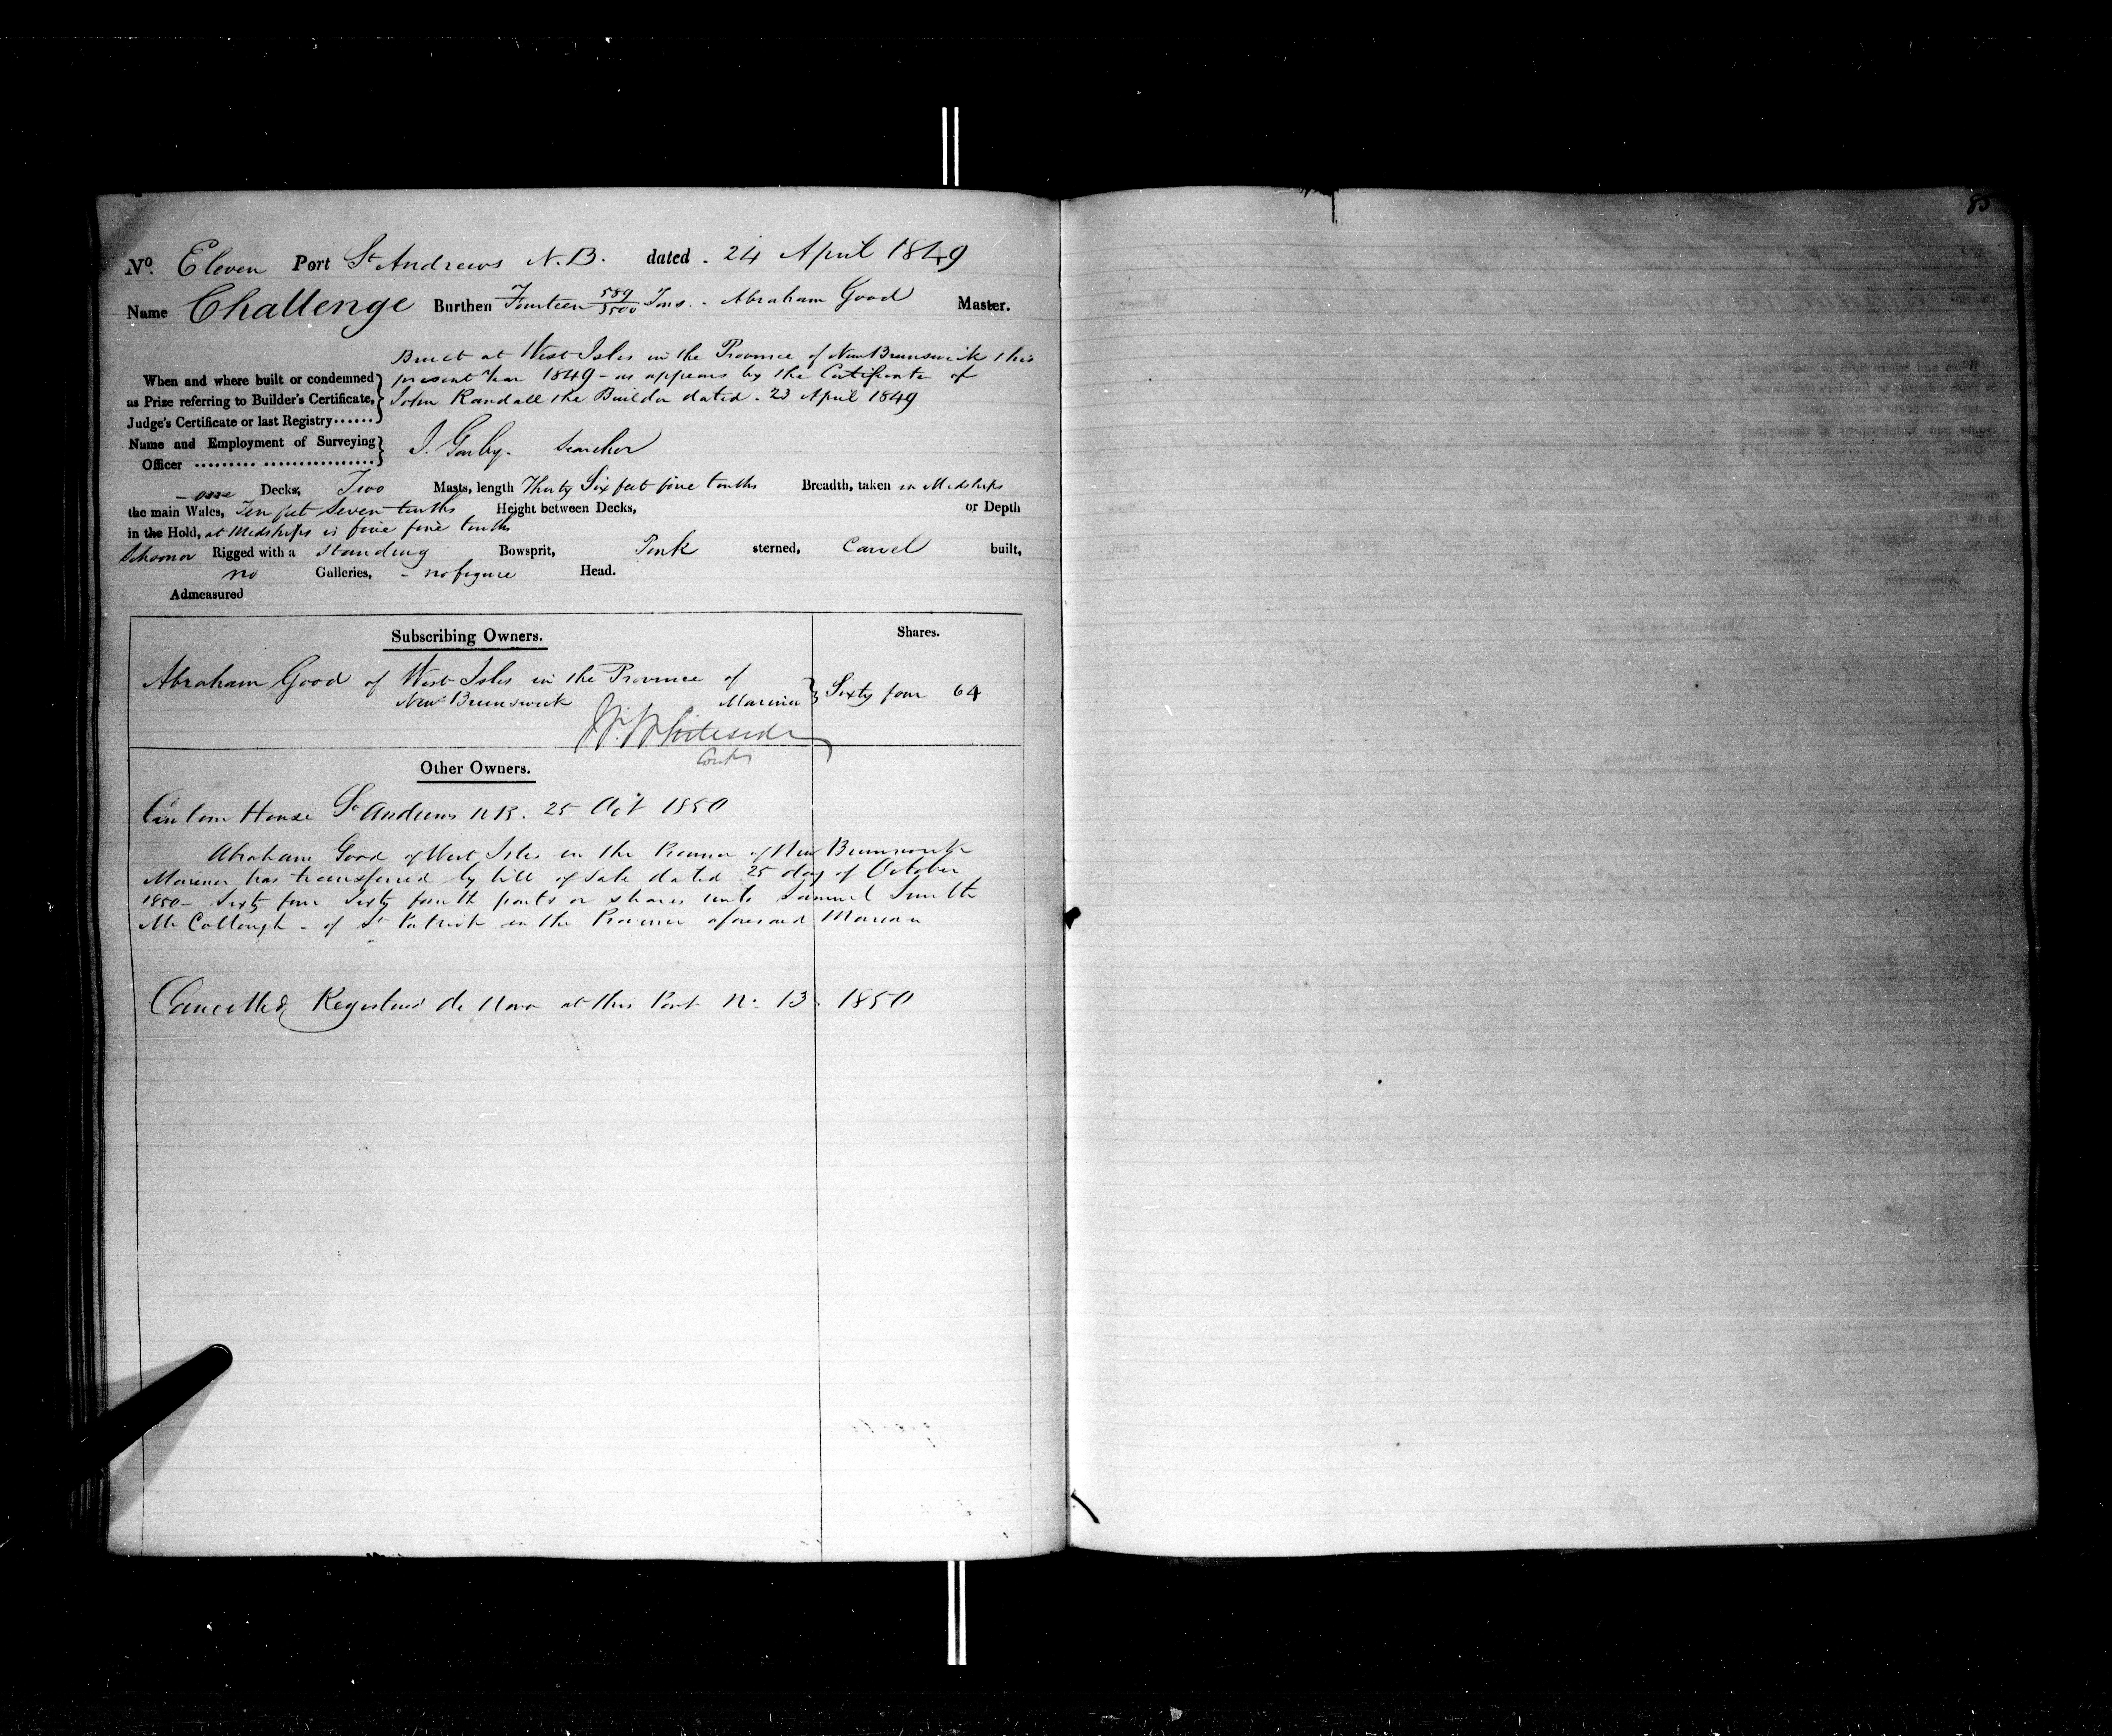 No. Eleven Port St Andrews N.B. dated . 24 April 1849
Name Challenge Burthen Fourteen 589/3500 Tons . Abraham Good Master.
Built at West Isles in the Province of New Brunswick this
When and where built or condemned present Year 1849 - as appears by the Certificate of
as Prize referring to Builder's Certificate, John Randall the Builder dated . 23 April 1849
Judge's Certificate or last Registry
Name and Employment of Surveying
Officer Searcher
one Decks, Two Masts, length Thirty Six feet five tenths Breadth, taken in Midships
the main Wales, Ten feet Seven tenths Height between Decks, or Depth
in the Hold, at Midships is five five tenths
Schooner Rigged with a standing Bowsprit, Pink sterned, Carvel built,
no Galleries, - no figure Head.
Admeasured
Subscribing Owners. Shares.
Abraham Good of West Isles in the Province of
New Brunswick Mariner } Sixty four 64
Whiteside
Other Owners.
Custom House St Andrews NB. 25 Oct 1850
Abraham Good of West Isles in the Province of New Brunswick
Mariner has transferred by bill of Sale dated 25 day of October
1850 - Sixty four Sixty fourth parts or shares unto Samuel Smith
McCollough - of St Patrick in the Province aforesaid Mariner
Cancelled Registered de Novo at this Port No. 13. 1850